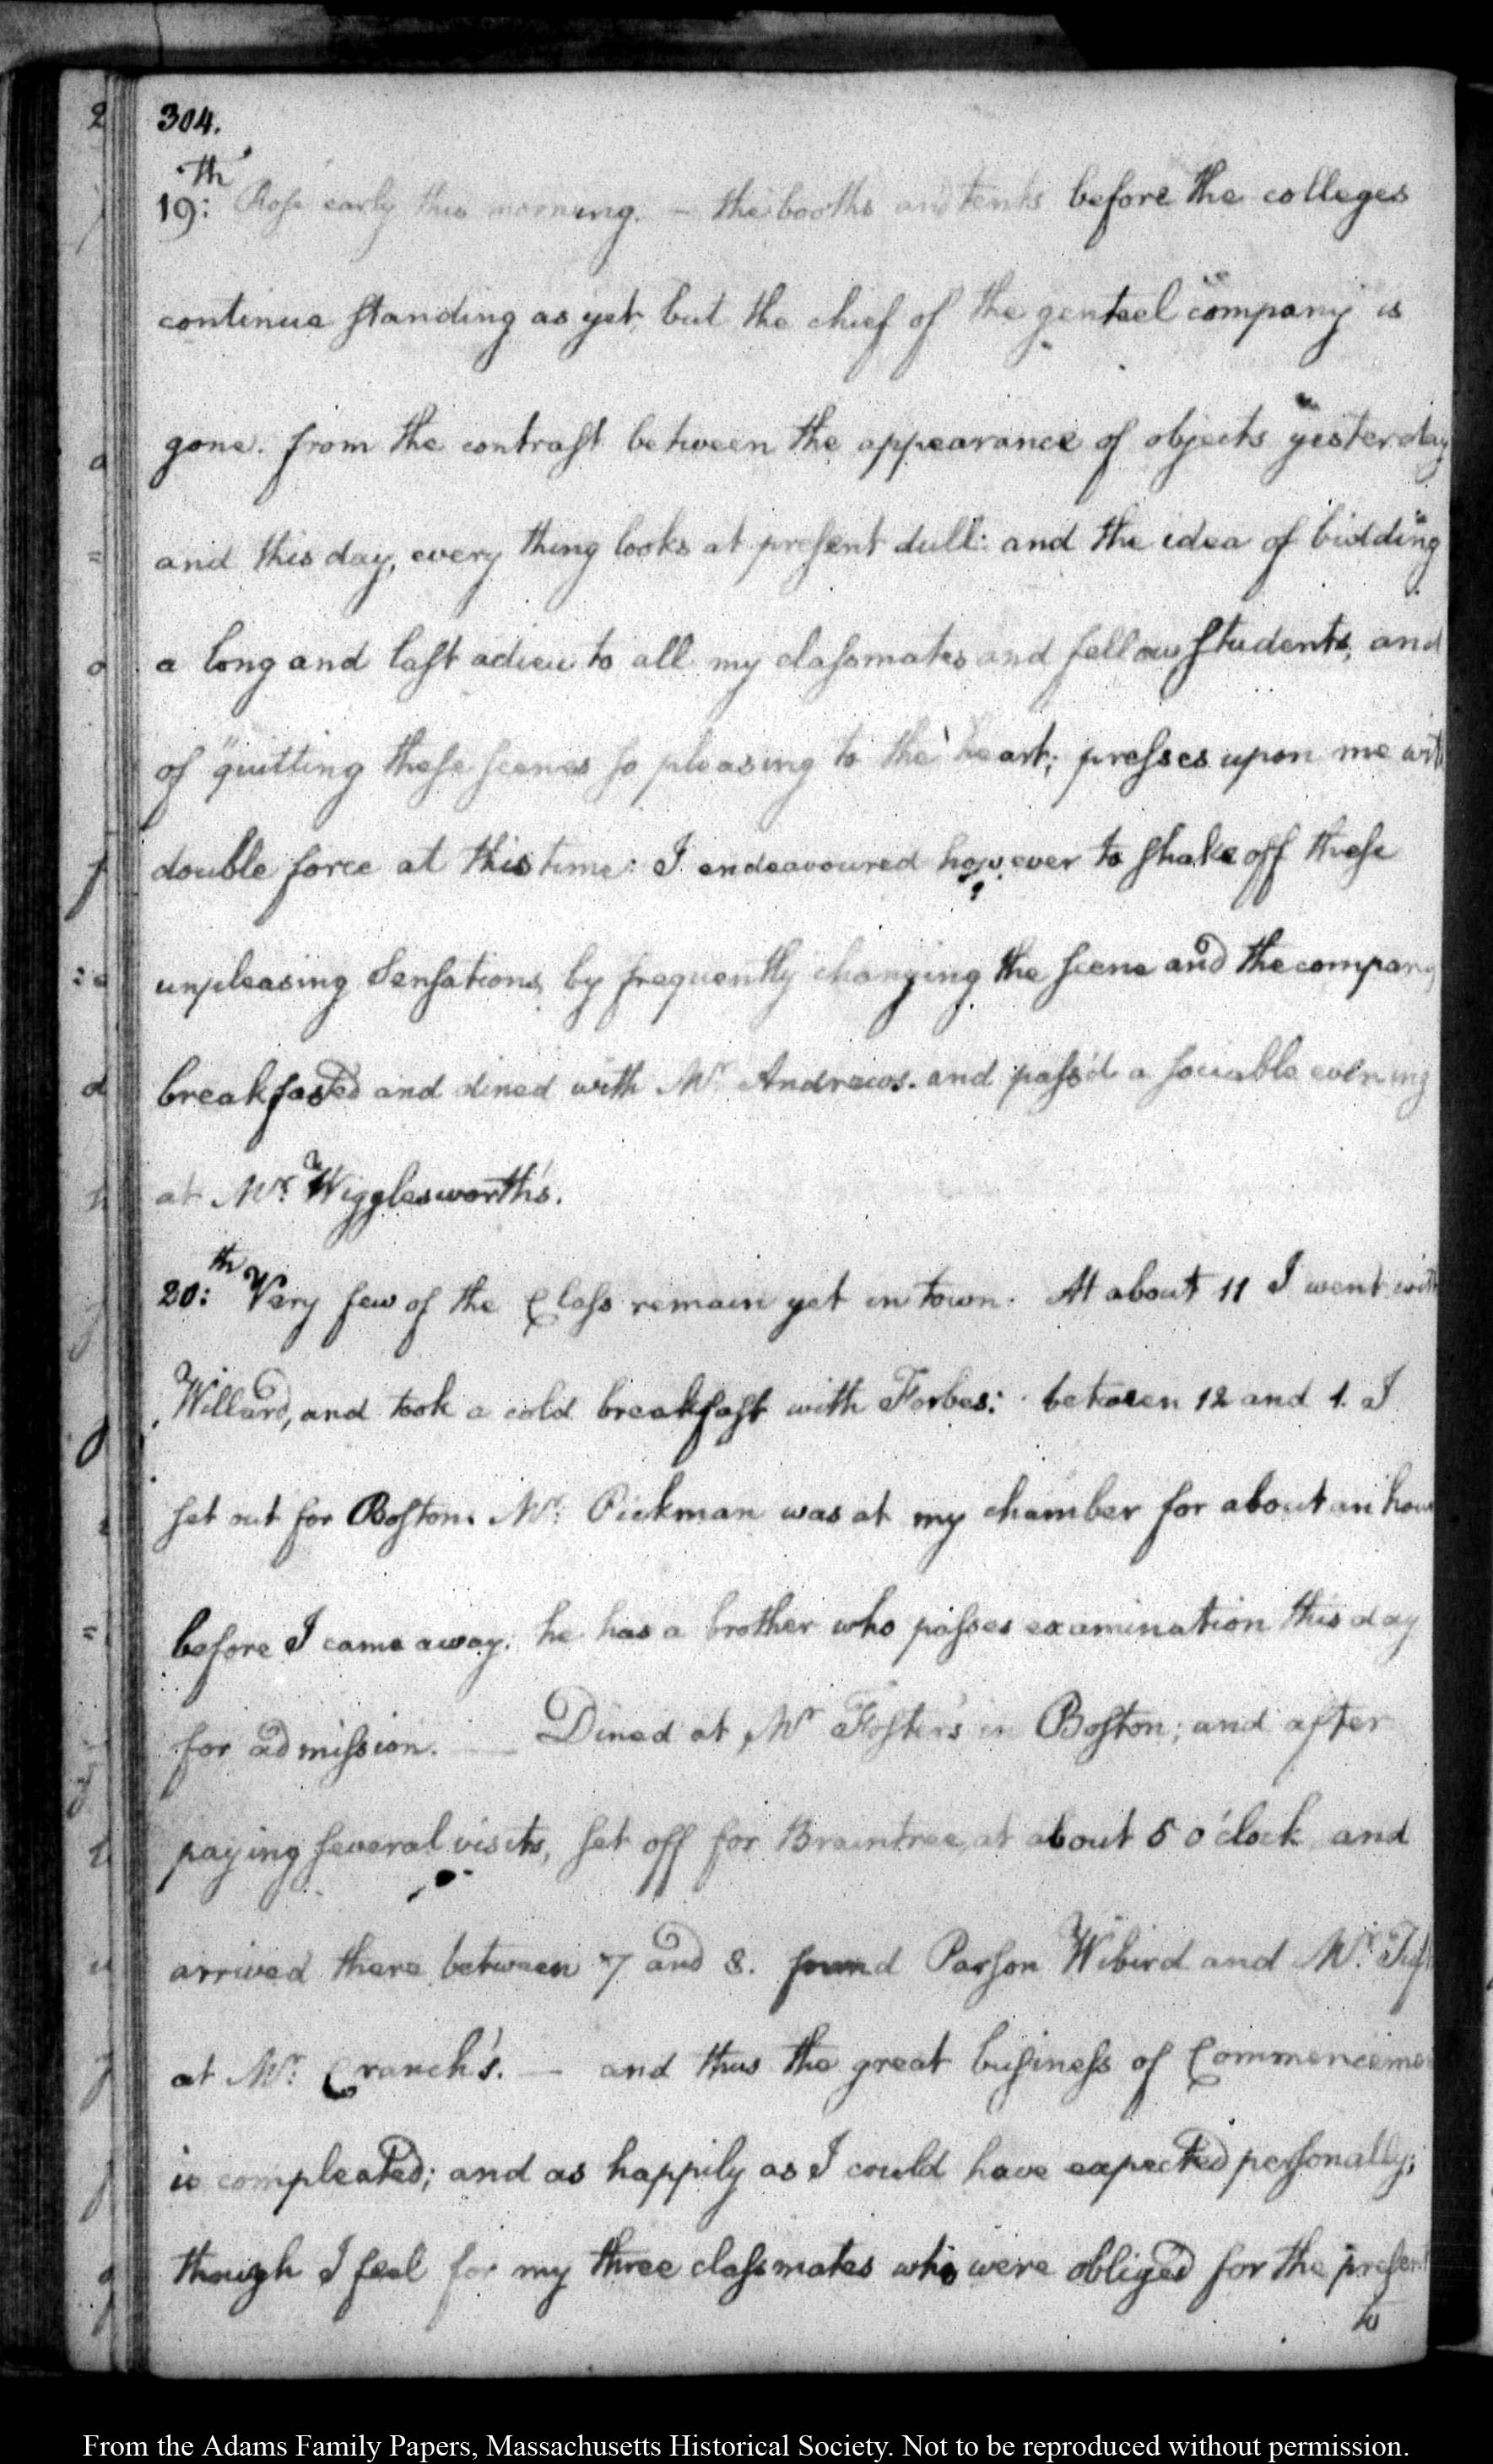 304.
19:th Rose early this morning. — the booths and tents before the colleges
continue standing as yet but the chief of the genteel company is
gone. from the contrast between the appearance of objects yesterday
and this day, every thing looks at present dull: and the idea of bidding
a long and last adieu to all my classmates and fellow students, and
of "quitting these scenes so pleasing to the heart; presses upon me with
double force at this time: I endeavoured however to shake off these
unpleasing Sensations, by frequently changing the scene and the company
breakfasted and dined with Mr. Andrews. and pass'd a sociable evening
at Mr. Wigglesworth's.
20:th Very few of the Class remain yet in town. At about 11 I went with
Willard, and took a cold breakfast with Forbes: between 12 and 1. I
set out for Boston. Mr: Pickman was at my chamber for about an hour
before I came away. he has a brother who passes examination this day
for admission. — Dined at Mr Foster's in Boston; and after
paying several visits, set off for Braintree, at about 5 o'clock and
arrived there between 7 and 8. found Parson Wibird and Mr.
at Mr: Cranch's. — and thus the great business of Commencemen
is compleated; and as happily as I could have expected personally;
though I feel for my three classmates who were obliged for the present
to
From the Adams Family Papers, Massachusetts Historical Society. Not to be reproduced without permission.